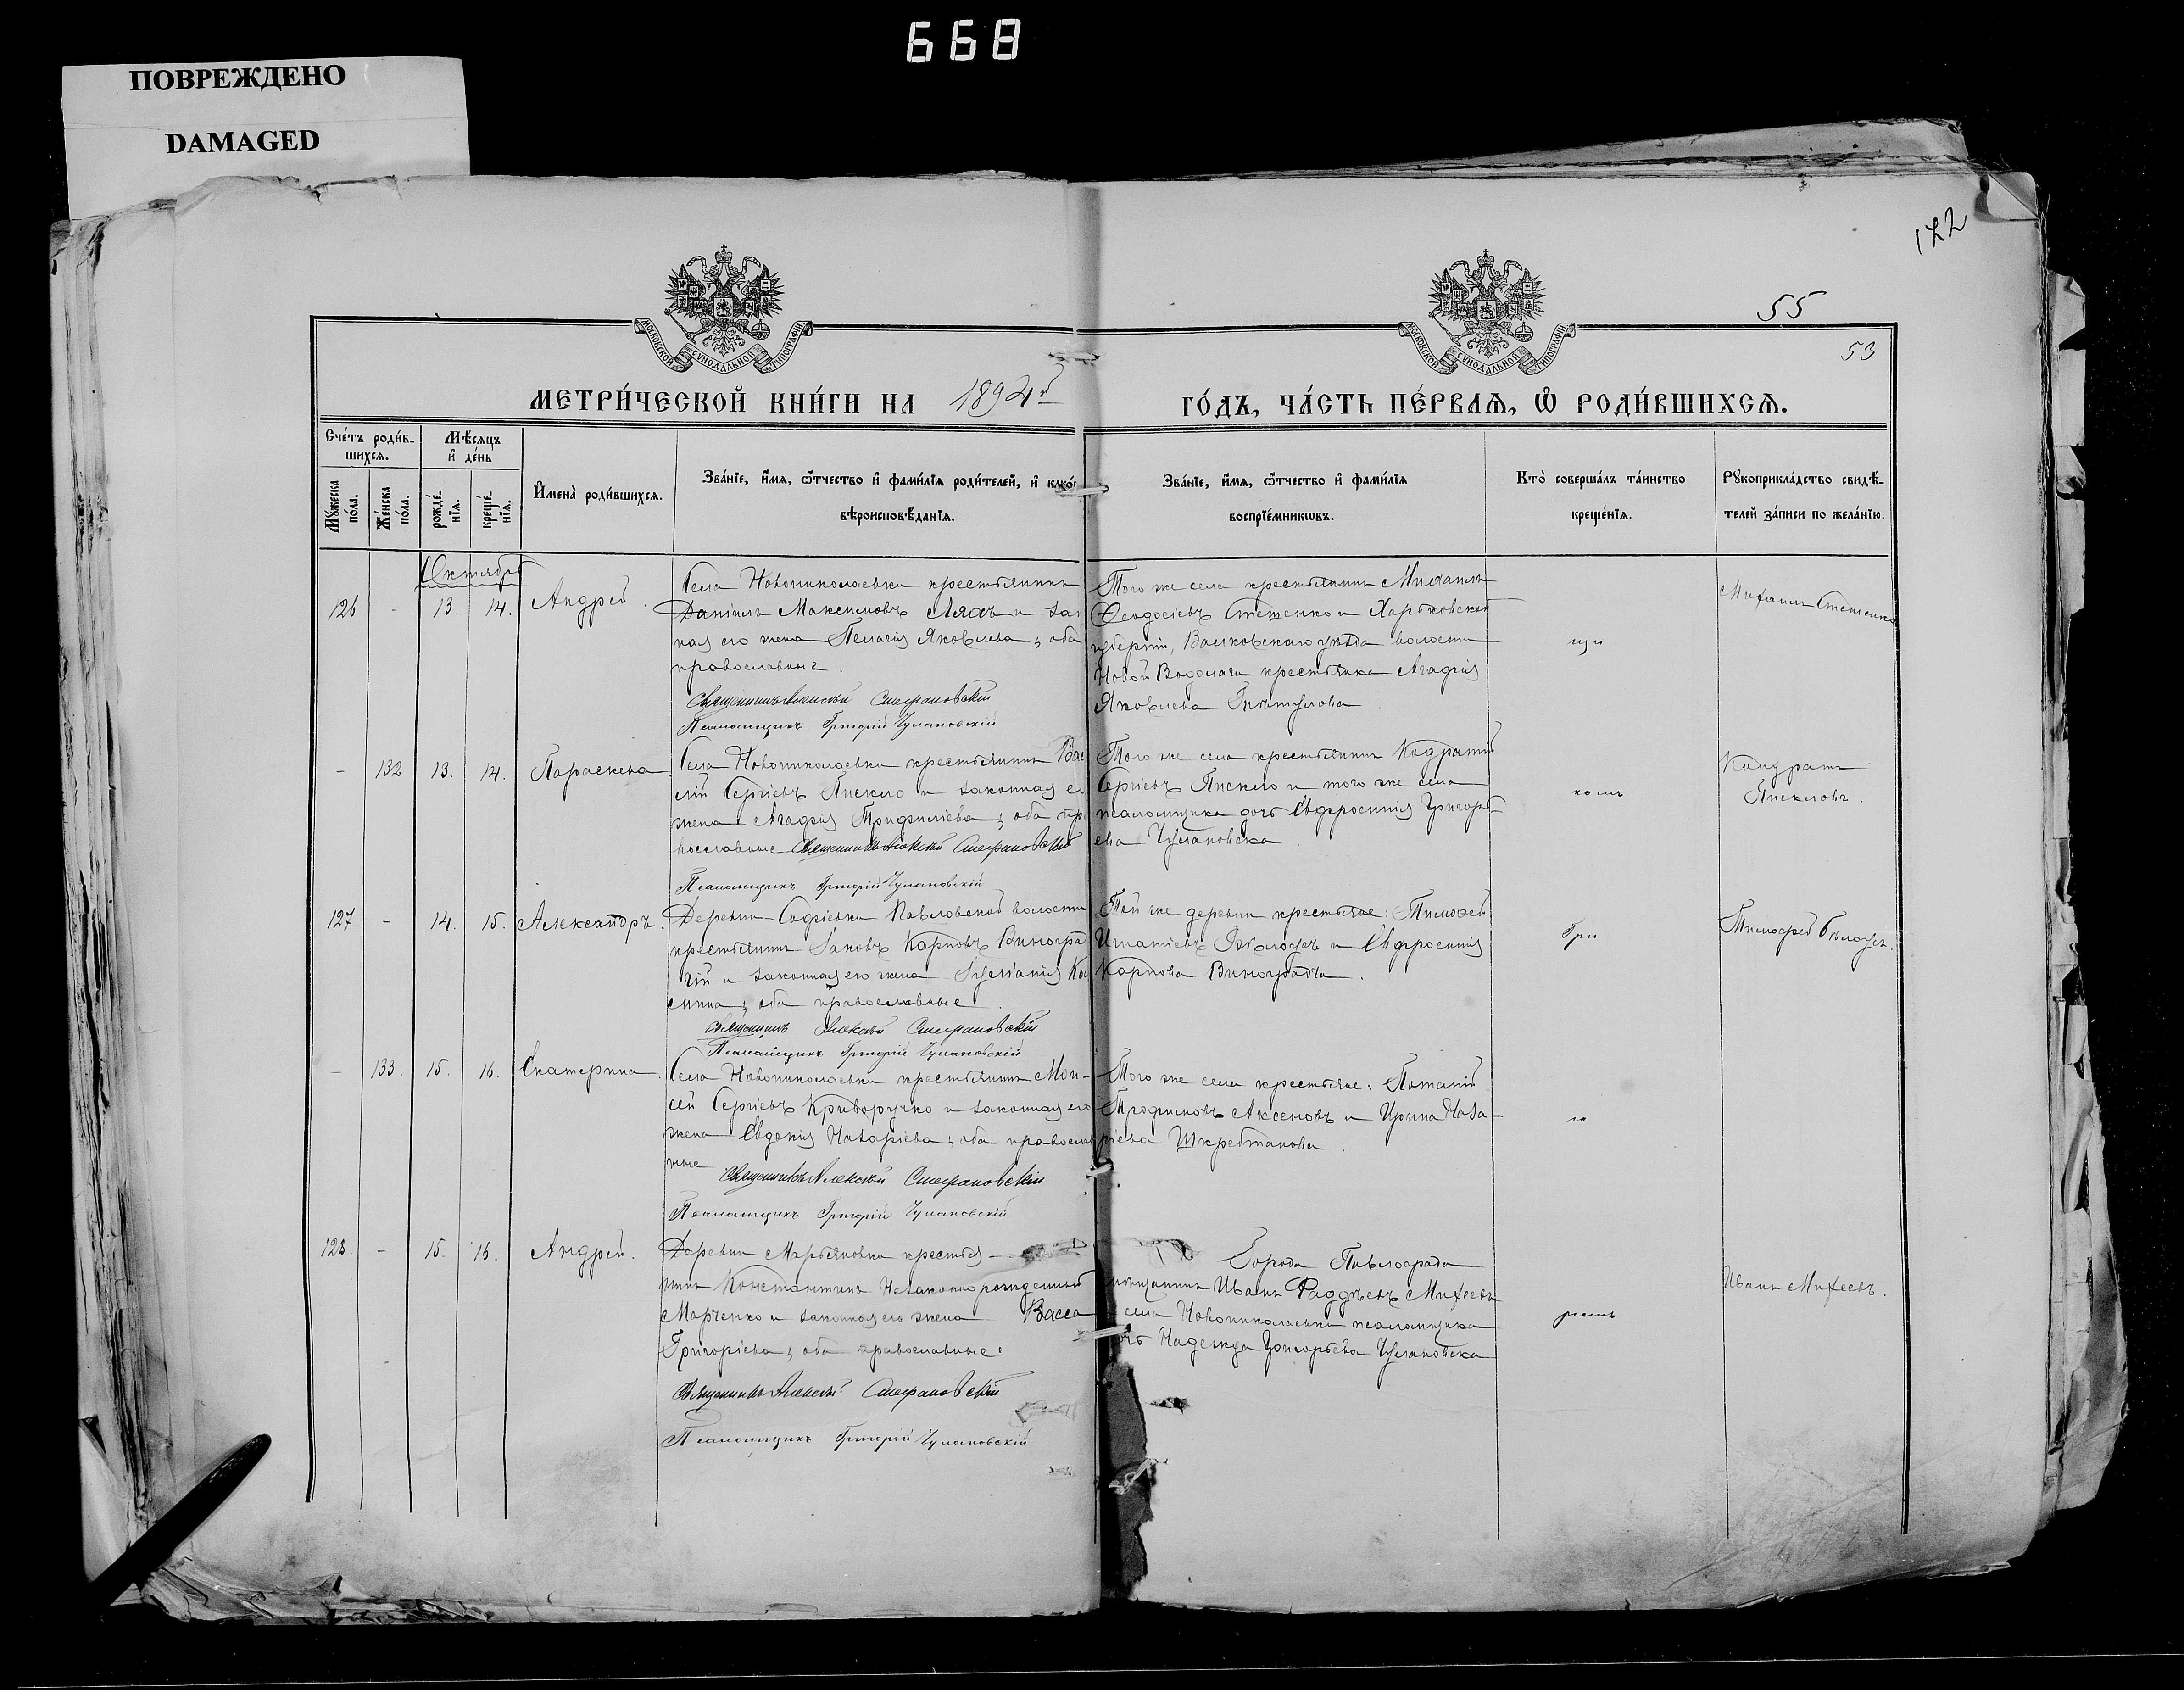 668
ПОВРЕЖДЕНО
DAMAGED
122
55
53
МОСКОВСКОЙ СУНОДАЛЬНОЙ ТИПОГРАФІИ
МОСКОВСКОЙ СУНОДАЛЬНОЙ ТИПОГРАФІИ
МЕТРИ́ЧЕСКОЙ КНИ́ГИ НА 1894й
ГО́ДЪ, ЧА́СТЬ ПЕ́РВАѦ, Ѽ РОДИ́ВШИХСѦ.
Счетъ роди́в-
шихсѧ.
Мѣсѧцъ
и҆ де́нь
Мꙋ́жеска по́ла.
Же́нска по́ла.
рожде́-нїѧ.
креще́-нїѧ.
И҆мена̀ роди́вшихсѧ.
Зва́нїе, и҆́мѧ, ѻ҆́тчество и҆ фами́лїѧ роди́телей, и҆ како́
вѣроисповѣ́данїѧ.
Зва́нїе, и҆́мѧ, ѻ҆́тчество и҆ фами́лїѧ
воспрїе́мникѡвъ.
Кто̀ соверша́лъ та́инство
креще́нїѧ.
Рꙋкоприкла́дство свидѣ́-
телей за́писи по жела́нїю.
Октябрь
126 - 13. 14. Андрей.
Села Новониколаевки крестьянинъ
Даніилъ Максимовъ Ляхъ и зак
ная его жена Пелагія Яковлева; оба
православные.
Священникъ Алексѣй Стефановскій
Псаломщикъ Григорій Чулановскій
Того же села крестьянинъ Михаилъ
Феодосіевъ Стешенко и Харьковской
губерніи, Валковскаго уѣзда волости
Новой Водолаги крестьянка Агафія
Яковлева
Михаилъ Стешенко
- 132 13. 14. Параскева
Села Новониколаевки крестьянинъ Вас
илій Сергіевъ Пискло и законная ег
жена Агафія Трифиліева; оба пр
вославные Священникъ Алексѣй Стефановскій
Псаломщикъ Григорій Чулановскій
Того же села крестьянинъ Кодратій
Сергіевъ Пискло и того же села
псаломщика дочь Евфросинія Григорь-
ева Чулановска
комъ
Кондратъ
Пискловъ.
127 - 14. 15. Александръ.
Деревни Софіевки Павловской волости
крестьянинъ Іаковъ Карповъ Виногра
чій и законная его жена Іуліанія Ко
смина; оба православные.
Священникъ Алексѣй Стефановскій
Псаломщикъ Григорій Чулановскій
Той же деревни крестьяне: Тимофей
Игнатіевъ Бѣлоусъ и Евфросинія
Карпова Виноградча.
Гри
Тимофей Бѣлоусъ.
- 133. 15. 16. Екатерина.
Села Новониколаевки крестьянинъ Мои-
сей Сергіевъ Криворучко и законная его
жена Евгенія Назаріева; оба правосла
ные Священникъ Алексѣй Стефановскій
Псаломщикъ Григорій Чулановскій
Того же села крестьяне: Потапій
Трофимовъ Аксеновъ и Ирина Наза-
ріева Шкребтакова
го
128. - 15. 16. Андрей.
Деревни Марьяновки крестья-
нинъ Константинъ Незаконнорожденный
Марченко и законная его жена Васса
Григоріева; оба православные.
Священникъ Алексѣй Стефановскій
Псаломщикъ Григорій Чулановскій
Города Павлограда
мѣщанинъ Иванъ Фаддѣевъ Михеевъ
села Новониколаевки псаломщика
очь Надежда Григорьева Чулановска
ріемъ
Иванъ Михеевъ.